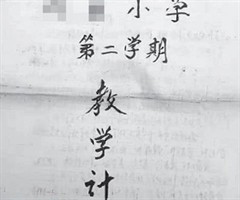 小学
第二学期
教
学
计